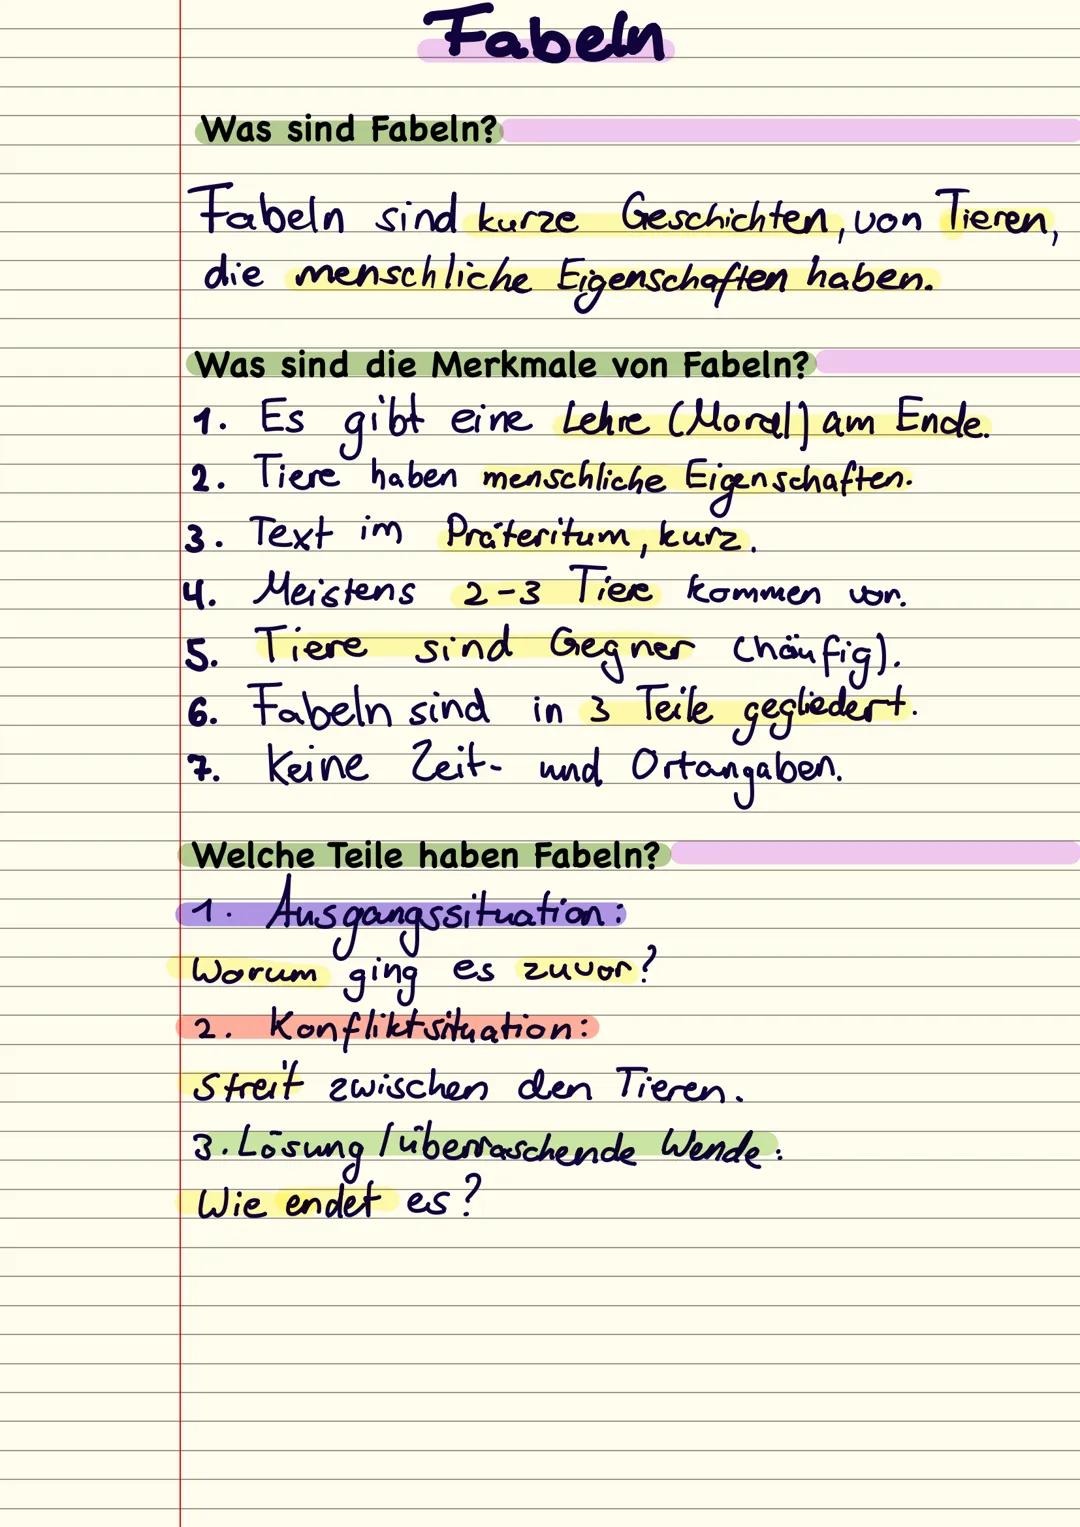 Fabeln
Was sind Fabeln?
Fabeln sind kurze Geschichten, von Tieren,
die menschliche Eigenschaften haben.
Was sind die Merkmale von Fabeln?
1. Es gibt eine Lehre (Moral) am Ende.
2. Tiere haben menschliche Eigenschaften.
3. Text im Präteritum, kurz.
4. Meistens 2-3 Tiere kommen vor.
5. Tiere sind Gegner (häufig).
6. Fabeln sind in 3 Teile gegliedert.
7. Keine Zeit- und Ortangaben.
Welche Teile haben Fabeln?
1. Ausgangssituation:
Worum ging es zuvor?
2. Konfliktsituation:
Streit zwischen den Tieren.
3. Lösung / überraschende Wende:
Wie endet es?